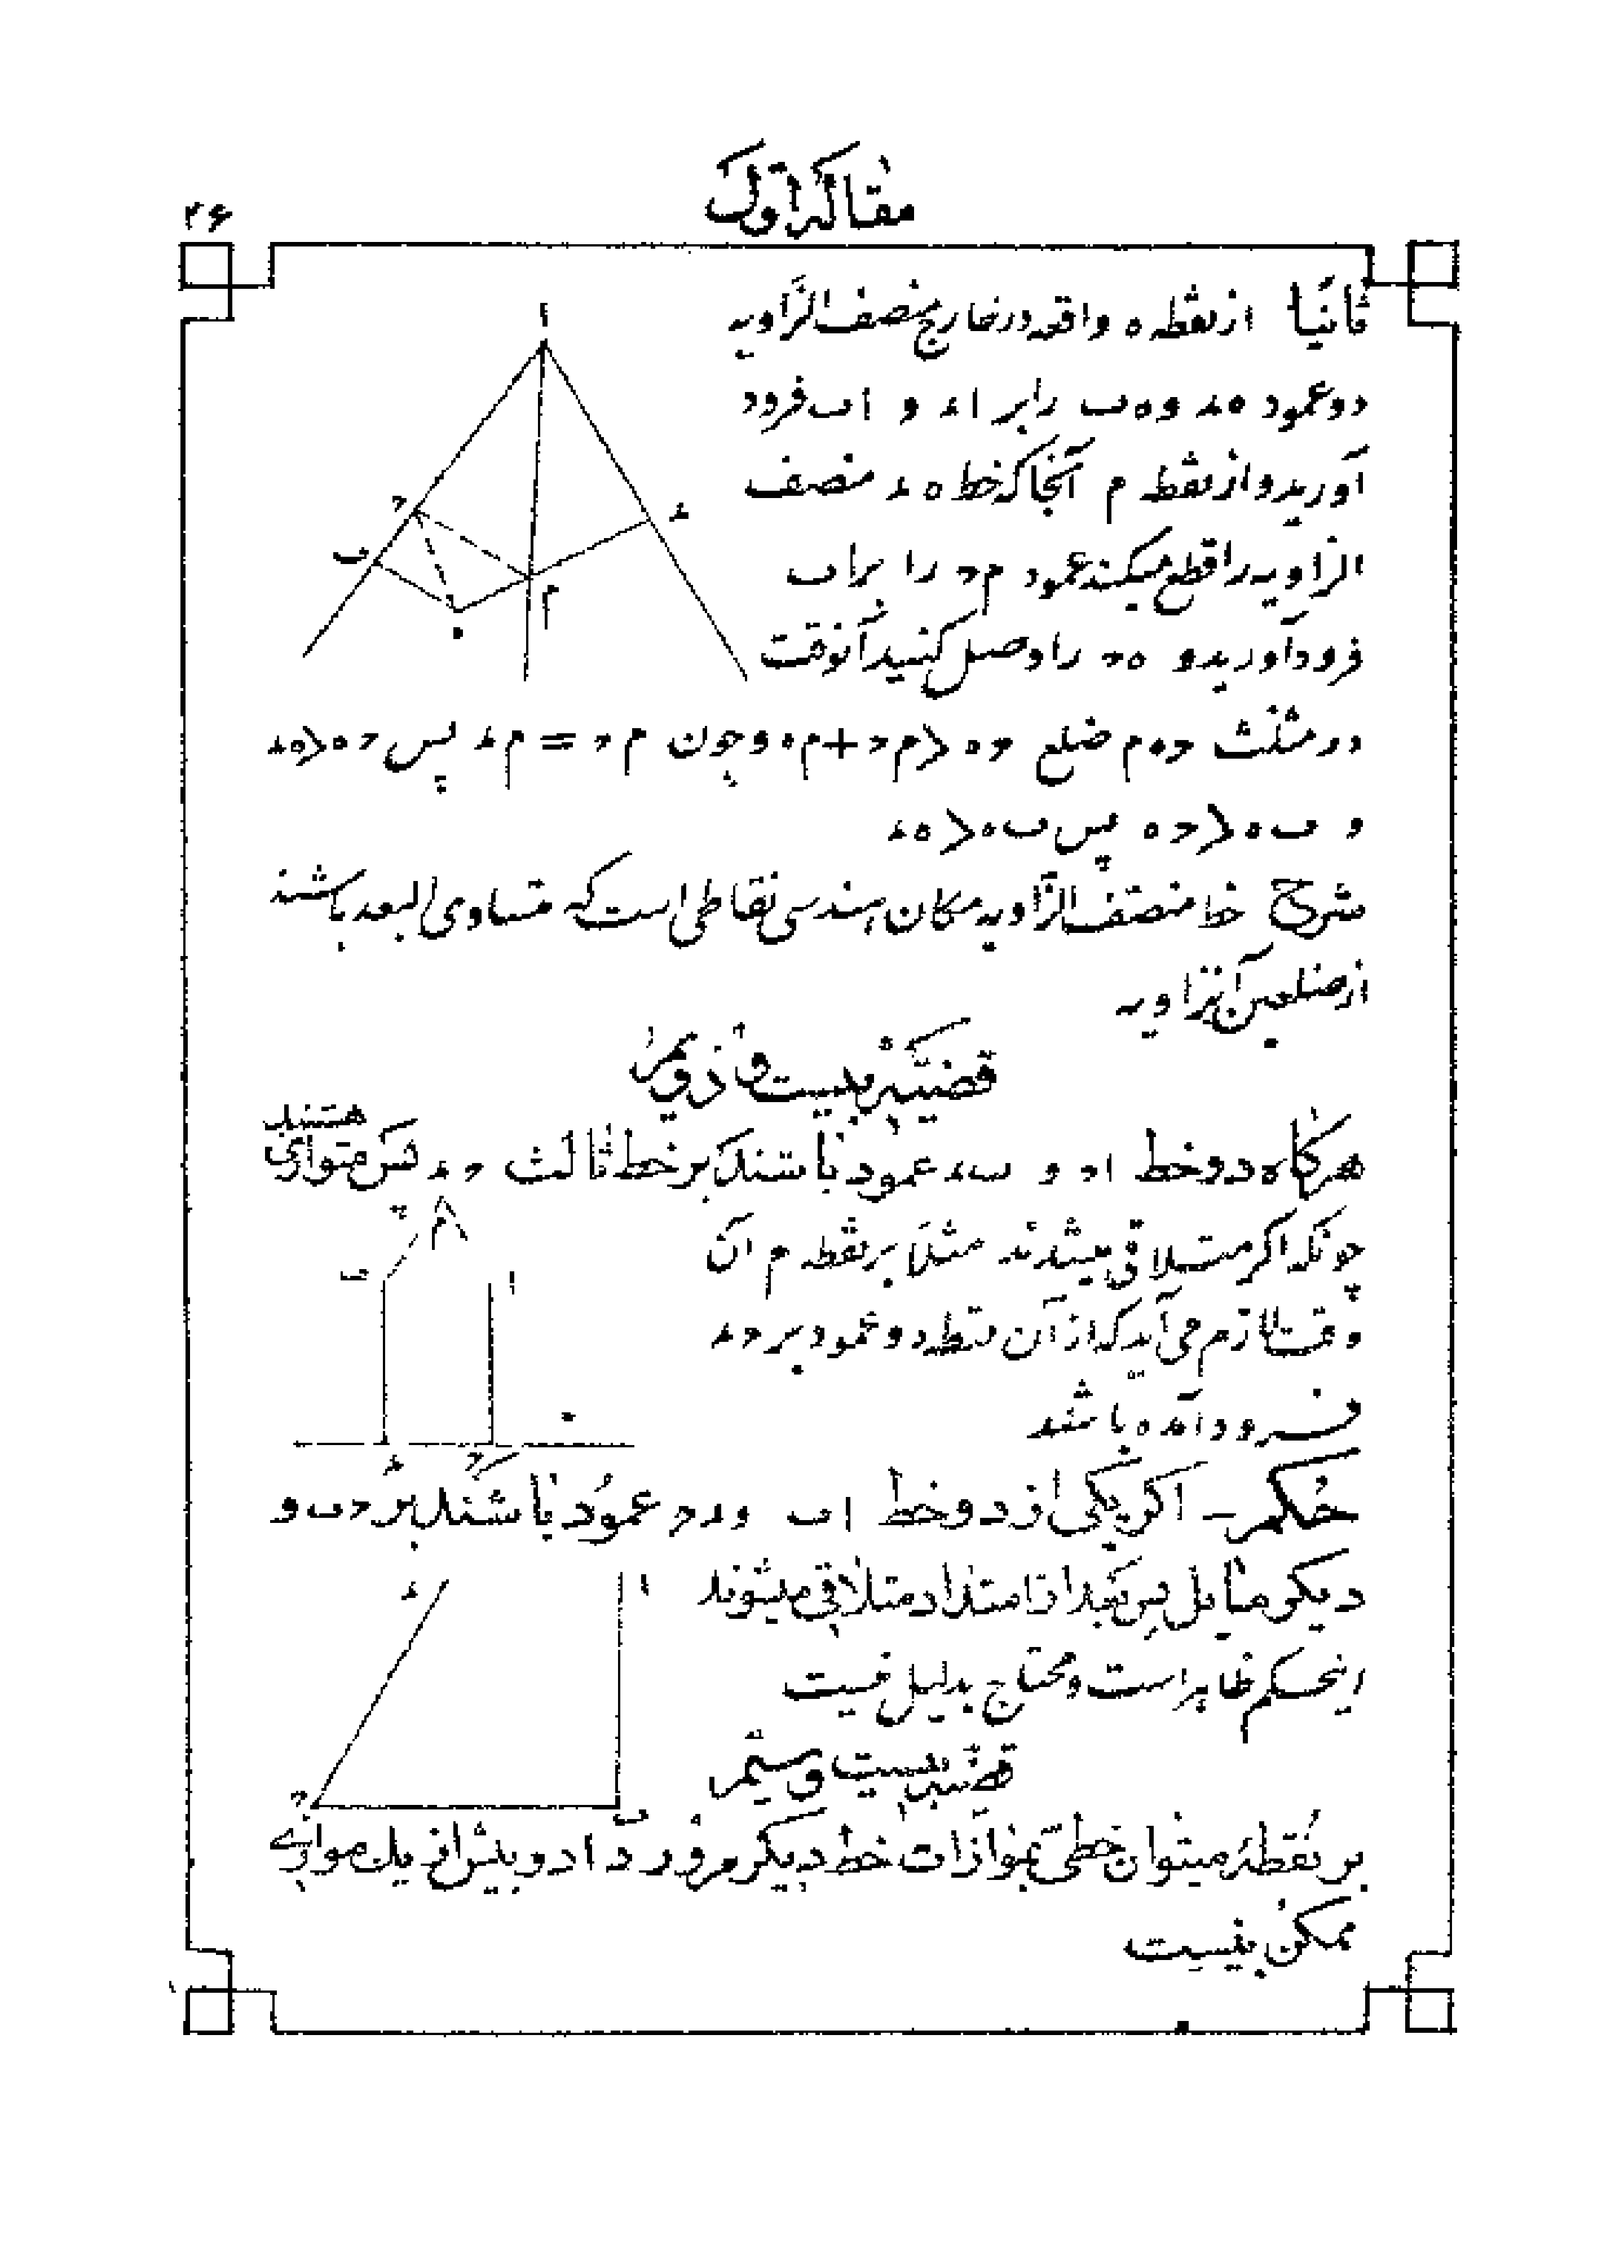 مقاله اول
۲۶
ثانیا از نقطه ه واقعه در خارج منصف الزاویه
دو عمود ه‍ء و ه‍ب را بر اء و اب فرود
آورید و از نقطه م آنجا که خط ه‍ء منصف
الزاویه را قطع میکند عمود م‍ح را بر اب
فرود آورید و ه‍ح را وصل کنید آنوقت
در مثلث ح‍ه‍م ضلع ح‍ه < م‍ح + م‍ه و چون م‍ح = م‍ء پس ح‍ه < ه‍ء
و ب‍ه < ح‍ه پس ب‍ه < ه‍ء
شرح خط منصف الزاویه مکان هندسی نقاطی است که متساوی البعد باشند
از ضلعین آنزاویه
قضیه بیست و دویم
هرگاه دو خط اح و ب‍ء عمود باشند بر خط ثالث ح‍ء پس متوازی هستند
چونکه اگر متلاقی میشدند مثلا بر نقطه م آن
وقت لازم می‌آید که از آن نقطه دو عمود بر ح‍ء
فرود آمده باشند
حکم - اگر یکی از دو خط اب و ء‍ح عمود باشند بر ح‍ب و
دیگر مایل پس بعد از امتداد متلاقی میشوند
اینحکم ظاهر است و محتاج بدلیل نیست
قضیه بیست و سیم
بر نقطهٔ میتوان خطی بموازات خط دیگر مرور داد و بیش از یک موازی
ممکن نیست
ا
ح
ء
ب
م
ه
م
ب
ا
ء
ح
ء
ا
ح
ب